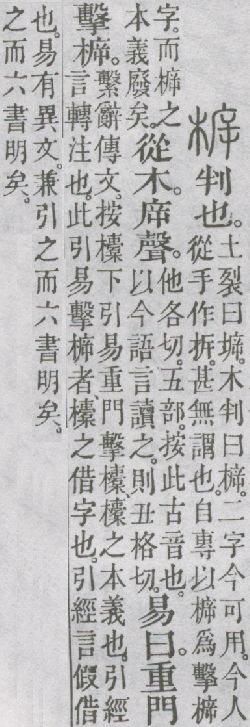 𣔳判也。
土裂曰㙤。木判曰𣔳。二字今可用。今人
從手作拆。甚無謂也。自專以𣔳爲擊𣔳
字。而𣔳之
本義廢矣。
從木。㡿聲。
他各切。五部。按此古音也。
以今語言讀之。則丑格切。
易曰重門
擊𣔳。
繫辭傳文。按欜下引易重門擊欜。欜之本義也。引經
言轉注也。此引易擊𣔳者。欜之借字也。引經言假借
也。易有異文。兼引之而六書明矣。
之而六書明矣。